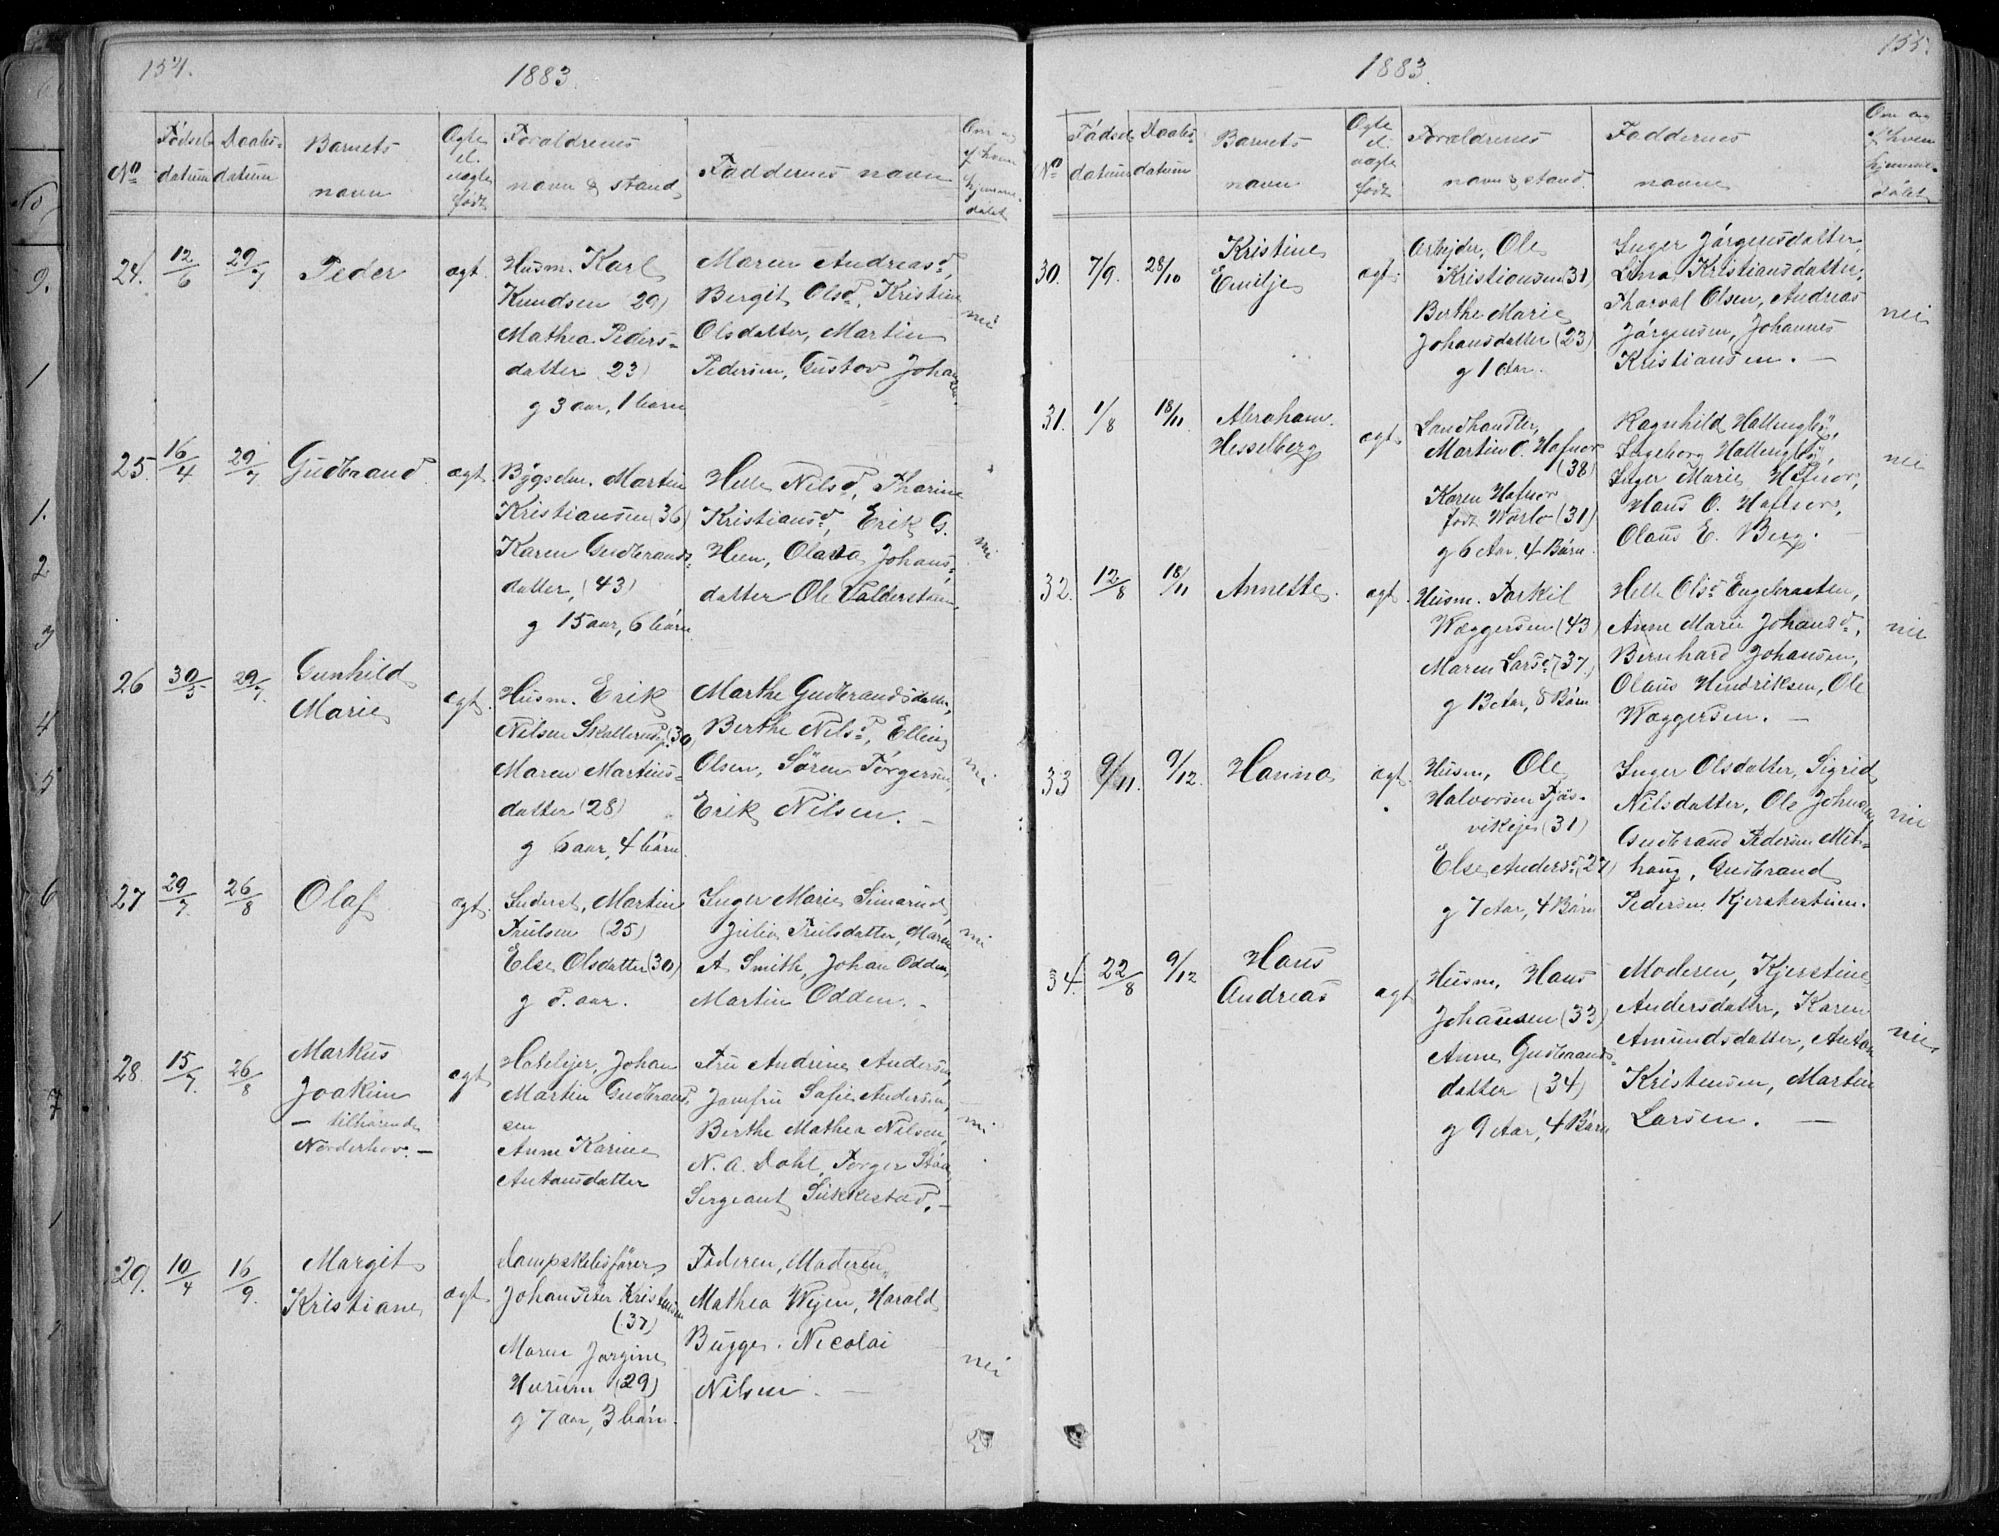 154.
1883.
No
Fødsels
datum
Daabs-
datum
Barnets
navn
Ægte
el.
uægte
født
Forældrenes
navn & stand
Faddernes navn
Om og
af hvem
hjemme-
døbt
24. 12/6 29/7 Peder ægt.
Husm. Karl
Knudsen (29)
Mathea Peders-
datter (23)
g 3 aar, 1 barn
Maren Andreasd.,
Bergit Olsd., Kristine
Olsdatter, Martin
Pedersen, Gustav Johansen.
nei
25. 16/4 29/7 Gudbrand ægt.
Bygselm. Martin
Kristiansen (36)
Karen Gudbrands-
datter, (43)
g 15 aar, 6 børn
Helle Nilsd., Tharine
Kristiansd., Erik G.
Heen, Olava Johans-
datter Ole
nei
26 30/5 29/7 Gunhild
Marie ægt.
Husm. Erik
Nilsen (30)
Maren Martins-
datter (28)
g 6 aar, 4 børn.
Marthe Gudbrandsdatter,
Berthe Nilsd., Elling
Olsen, Søren Torgersen,
Erik Nilsen. –
nei
27 29/7 26/8 Olaf ægt.
Inderst, Martin
Trulsen (25)
Else Olsdatter (30)
g d. aar.
Inger Marie
Julie Trulsdatter, Maren
A Smith, Johan Odden,
Martin Odden. –
nei
28. 15/7 26/8 Markus
Joakim
– tilhørende
Norderhov. –
ægt.
Hotelejer, Johan
Martin Gudbrand-
sen
Anne Karine
Antonsdatter
Fru Andrine Andersen,
Jomfru Sofie Andersen,
Berthe Mathea Nilsen,
N. A. Dahl, Torger
Sergeant Sukkestad. –
nei
29. 10/4 16/9. Margit
Kristiane ægt.
Dampskibsfører
Johan Peter Kristensen
(37)
Maren Jørgine
Hurum (29)
g 7 aar, 3 børn.
Faderen, Moderen,
Mathea Wejen, Harald
Bugge. Nicolai
Nilsen. –
nei
155.
1883.
No
Fødsels
datum
Daabs-
datum
Barnets
navn
Ægte
el.
uægte
født
Forældrenes
navn & stand.
Faddernes
navne
Om og
af hvem
hjemme-
døbt
30. 7/9. 28/10 Kristine
Emilje ægt.
Arbejder, Ole
Kristiansen (31)
Berthe Marie
Johansdatter (23)
g 1 Aar.
Inger Jørgensdatter,
Lina Kristiansdatter,
Tharval Olsen, Andreas
Jørgensen, Johannes
Kristiansen. –
nei
31. 1/8 18/11. Abraham
Hesselberg ægt.
Landhandler,
Martin O. Hafnor
(38)
Karen Hafnor
født Warlo (31)
g 6 Aar. 4 Børn.
Ragnhild Hallingby,
Ingeborg Hallingby,
Inger Marie Hafnor,
Hans O. Hafnor,
Olaus E. Berg. –
nei
32. 12/8 18/11 Annette. ægt.
Husm. Torkil
Wæggersen (43)
Maren Larsd. (37.)
g 13 Aar, 8 Børn
Helle Olsd. Engebraaten,
Anne Marie Johansd.,
Bernhard Johansen,
Olaus Hendriksen, Ole
Wæggersen. –
nei
33 9/11. 9/12. Hanna ægt.
Husm, Ole
Halvorsen Tjøs-
vikejer (31)
Else Andersd. (27)
g 7 Aar, 4 Børn
Inger Olsdatter, Sigrid
Nilsdatter, Ole Johnsen,
Gudbrand Pedersen Mit-
haug, Gudbrand
Pedersen
nei
34. 22/8 9/12 Hans
Andreas ægt
Husm, Hans
Johansen (33)
Anne Gudbrands-
datter (34)
g 9 Aar, 4 Børn
Moderen, Kjerstine
Andersdatter, Karen
Amundsdatter, Anton
Kristensen, Martin
Larsen. –
nei